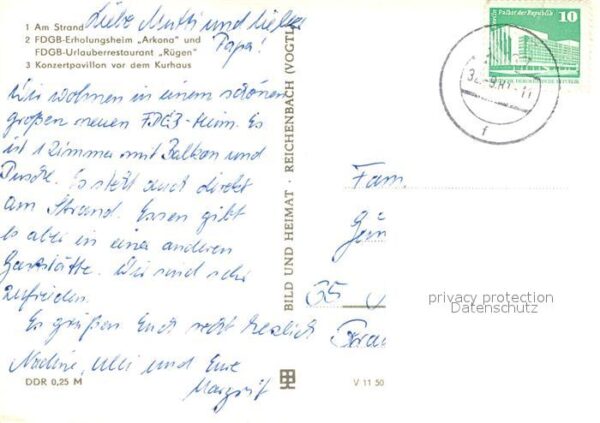 Liebe Mutti und lieber
Papa!
1 Am Strand
2 FDGB-Erholungsheim „Arkona" und
FDGB-Urlauberrestaurant „Rügen"
3 Konzertpavillon vor dem Kurhaus
Wir wohnen in einem schönen
großen neuen FDGB-Heim. Es
ist 1 Zimmer mit Balkon und
Dusche. Es steht auch direkt
am Strand. Essen gibt
es aber in einer anderen
Gaststätte. Wir sind sehr
zufrieden.
Es grüßen Euch recht herzlich
Nadine, Ulli und Eure
Margrit
DDR 0,25 M
BILD UND HEIMAT · REICHENBACH (VOGTL
V 11 50
Palast der Republik
10
Fam.
65
privacy protection
Datenschutz